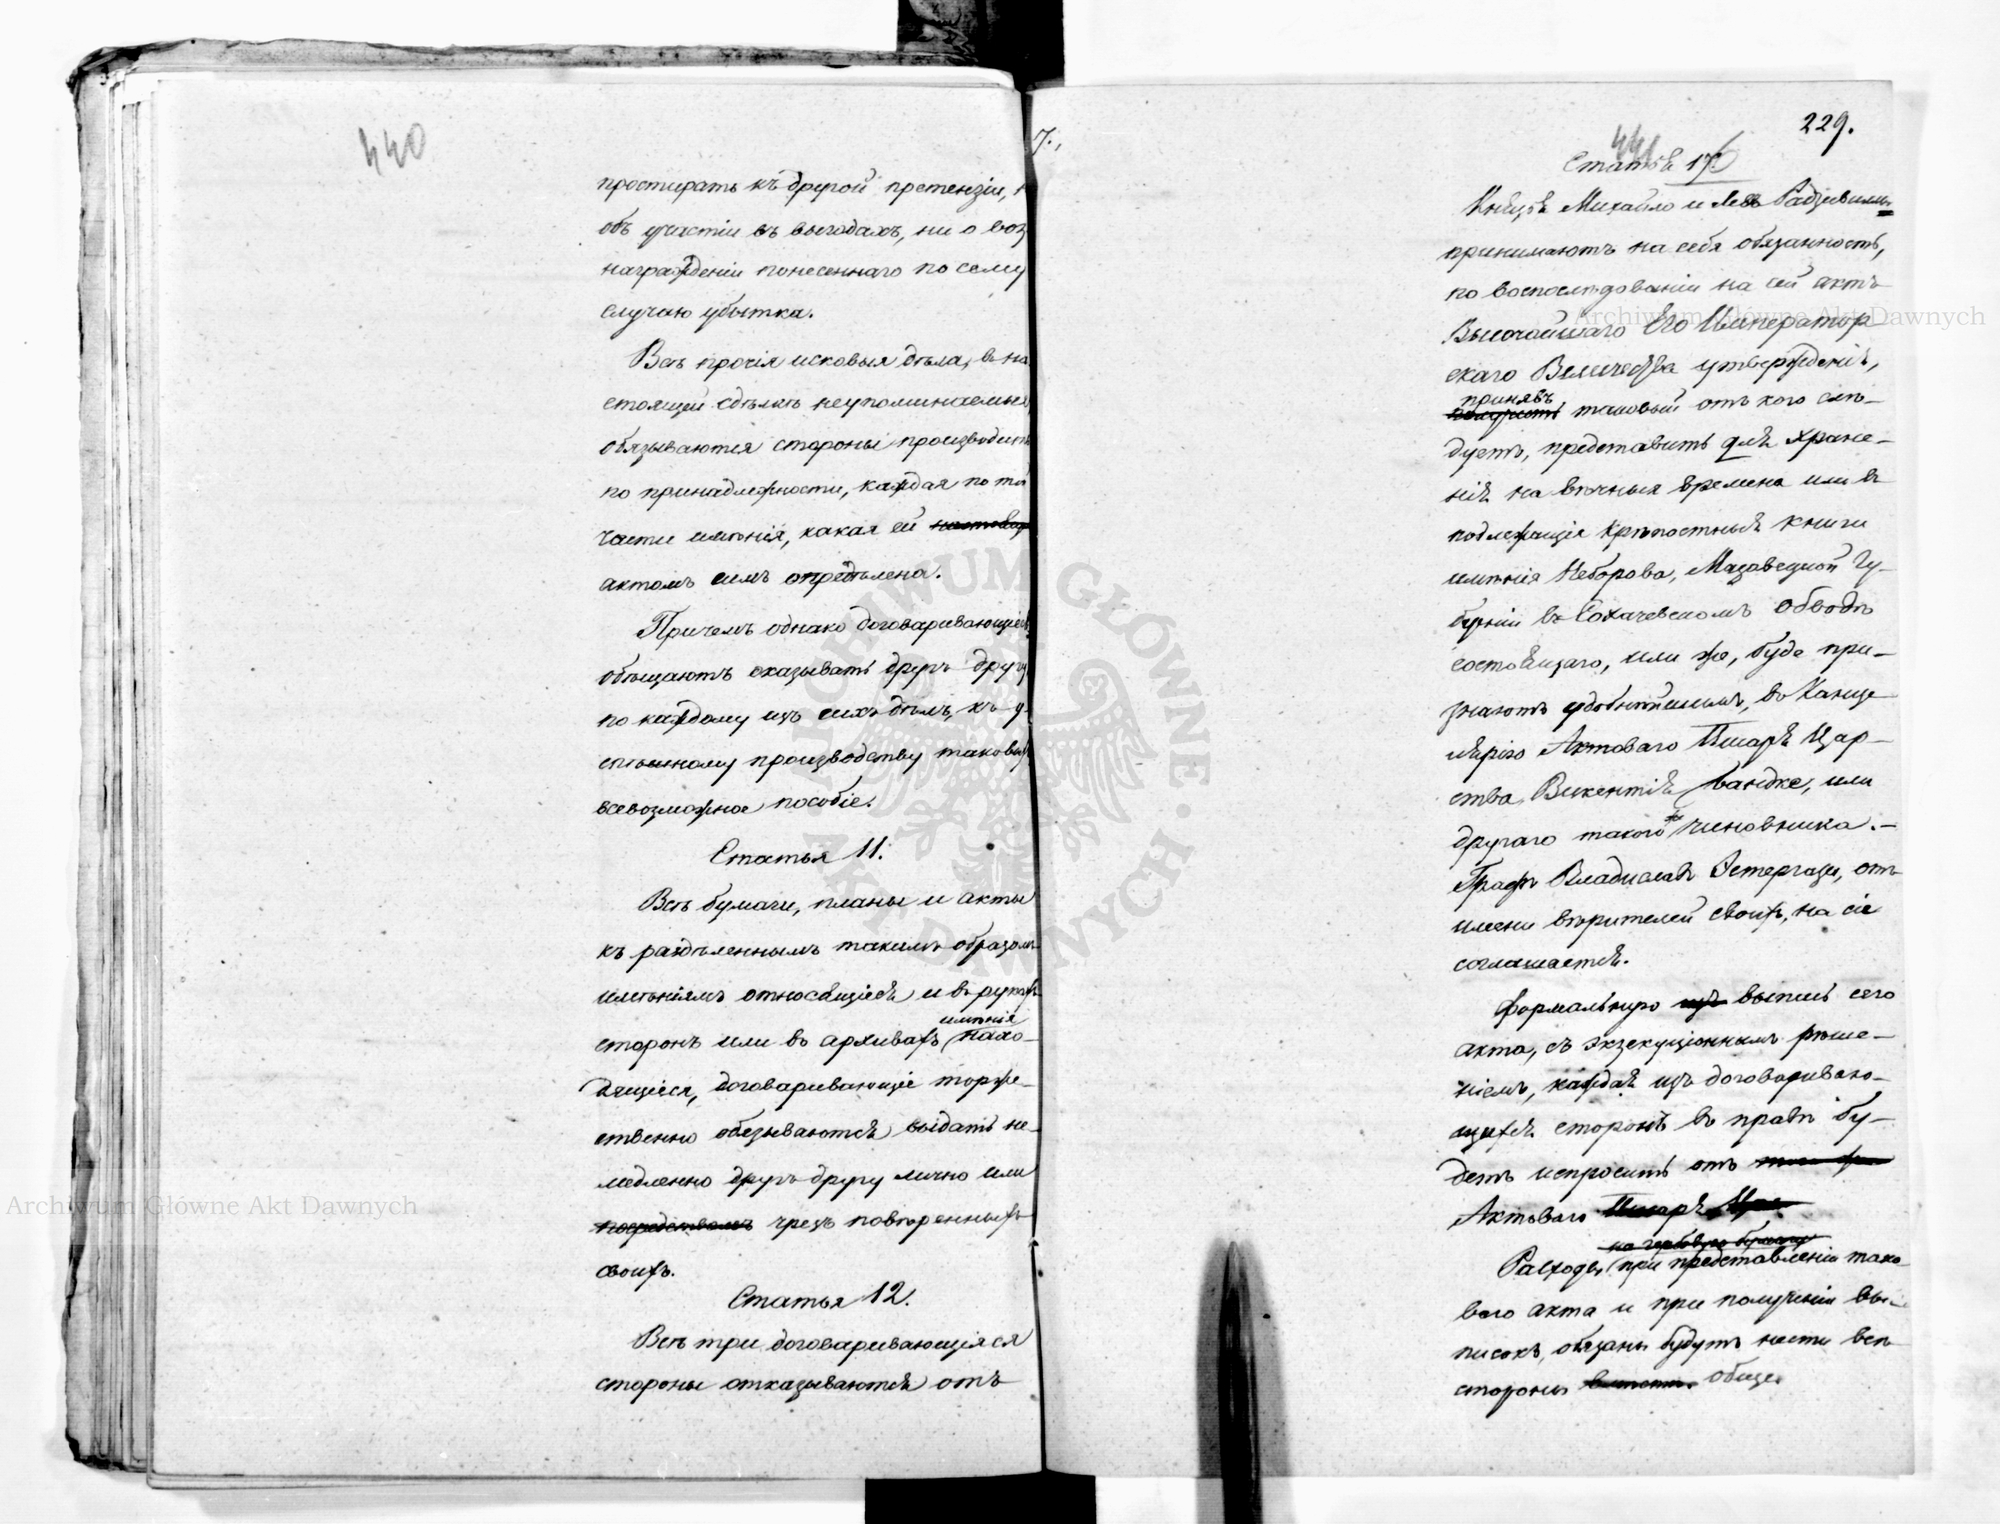 440
простирать къ другой претензіи, н
объ участіи въ выгодахъ, ни о воз
награжденіи понесеннаго по сему
случаю убытка.
Всѣ прочія исковыя дѣла, въ на
стоящей сдѣлкѣ неупоминаемыя
обязываются стороны производить
по принадлежности, каждая по той
части имѣнія, какая ей
актомъ симъ опредѣлена.
Причемъ однако договаривающіеся
обѣщаютъ оказывать другъ другу
по каждому изъ сихъ дѣлъ, къ у-
спѣшному производству таковыхъ
всевозможное пособіе.
Статья 11.
Всѣ бумаги, планы и акты
къ раздѣленнымъ такимъ образомъ
имѣніямъ относящіеся и въ рукахъ
имѣнія
сторонъ или въ архивахъ нахо-
дящіеся, договаривающіе торже-
ственно обязываются выдать не-
медленно другъ другу лично или
посредствомъ чрезъ повѣренныхъ
своихъ.
Статья 12.
Всѣ три договаривающіяся
стороны отказываются отъ
7.,
229.
441
Статья 17
Князья Михайло и Левъ Радзивилы
принимаютъ на себя обязанность,
по воспослѣдованіи на сей актъ
Высочайшаго Его Император
скаго Величества утвержденія,
принявъ
таковый отъ кого слѣ-
дуетъ, представить для хране-
нія на вѣчныя времена или въ
подлежащія крѣпостныя книги
имѣнія Неборова, Мазовецкой Гу-
берніи въ Сохачевскомъ обводѣ
состоящаго, или же, буде при-
знаютъ удобнѣйшимъ, въ Канце
лярію Актоваго Писаря Цар-
ства, Викентія Бандке, или
другаго такого же чиновника.-
Графъ Владиславъ Эстергази, отъ
имени вѣрителей своихъ, на сіе
соглашается.
Формальную изъ выпись сего
акта, съ экзекуціоннымъ рѣше-
ніемъ, каждая изъ договариваю-
щихся сторонъ въ правѣ бу-
детъ испросить отъ
Актоваго Писаря
на гербовую бумагу
Расходы при представленіи тако
ваго акта и при полученіи вы-
писокъ, обязаны будутъ нести всѣ
стороны общe